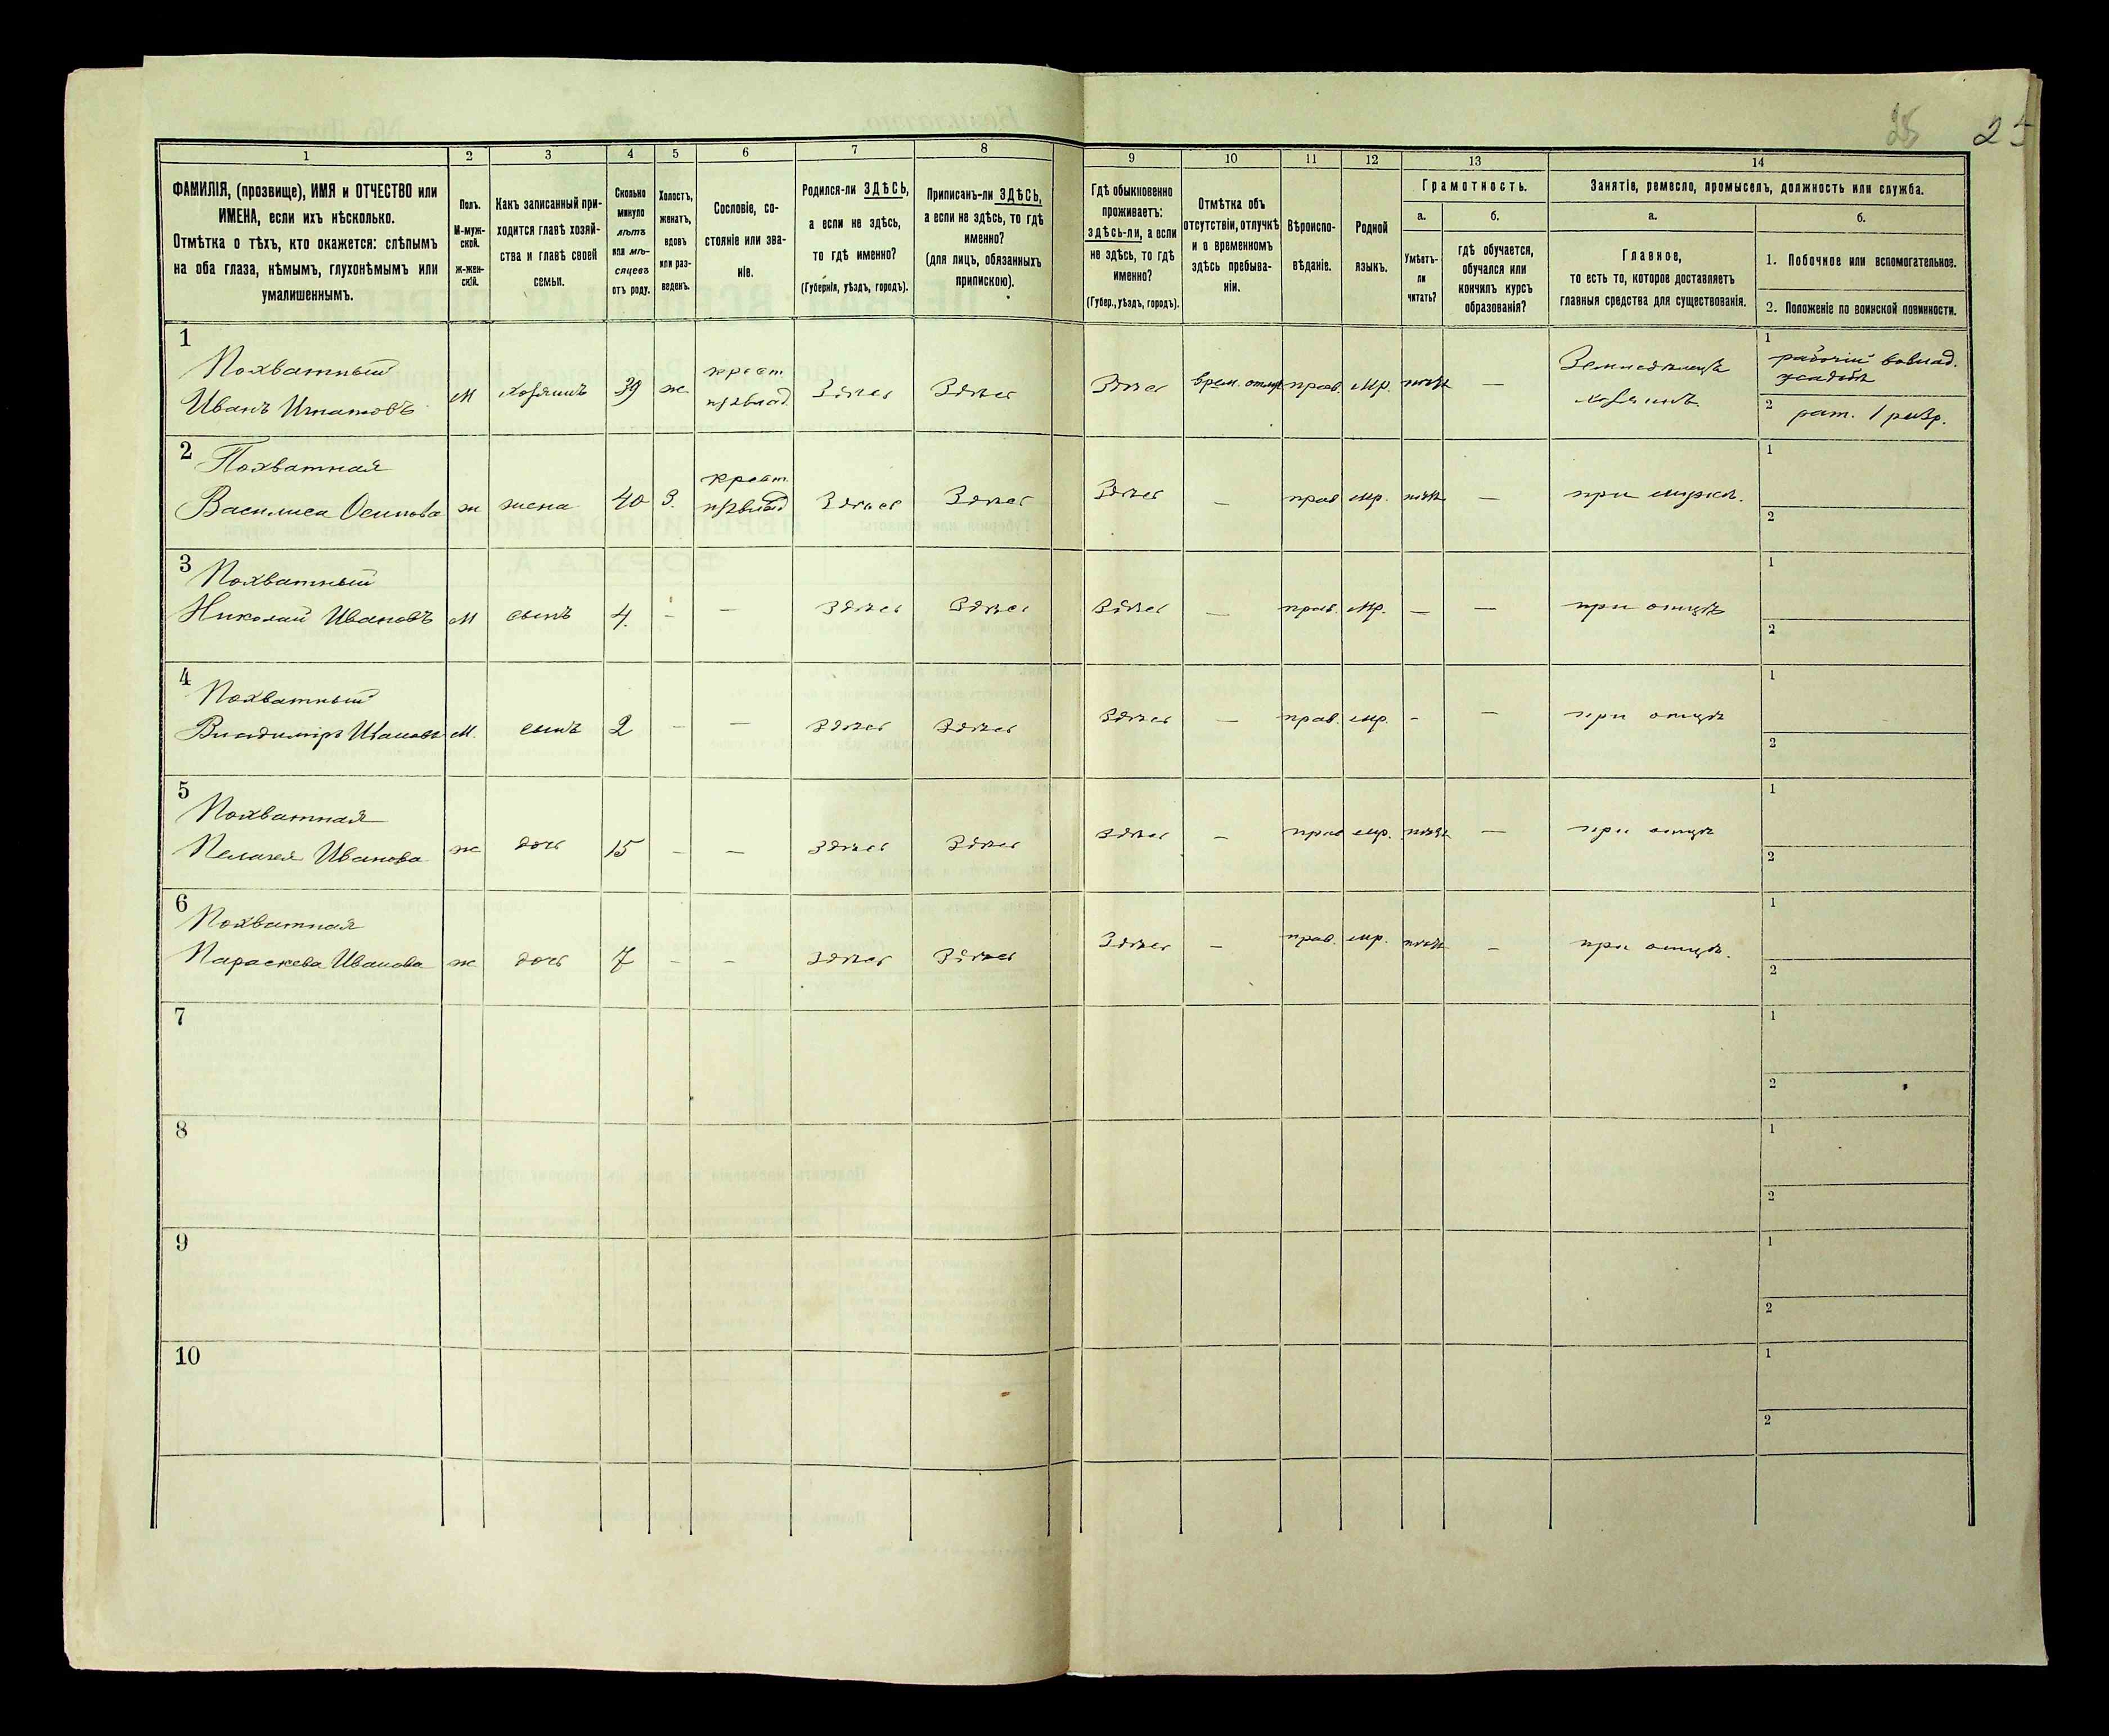 25
1 2 3 4 5 6 7 8 9 10 11 12 13 14
ФАМИЛІЯ, (прозвище), ИМЯ и ОТЧЕСТВО или
ИМЕНА, если ихъ нѣсколько.
Отмѣтка о тѣхъ, кто окажется: слѣпымъ
на оба глаза, нѣмымъ, глухонѣмымъ или
умалишеннымъ.
Полъ.
М-муж-
ской.
ж-жен-
скій.
Какъ записанный при-
ходится главѣ хозяй-
ства и главѣ своей
семьи.
Сколько
минуло
лѣтъ
или мѣ-
сяцевъ
отъ роду.
Холостъ,
женатъ,
вдовъ
или раз-
веденъ.
Сословіе, со-
стояніе или зва-
ніе.
Родился-ли ЗДѢСЬ,
а если не здѣсь,
то гдѣ именно?
(Губернія, уѣздъ, городъ).
Приписанъ-ли ЗДѢСЬ,
а если не здѣсь, то гдѣ
именно?
(для лицъ, обязанныхъ
припискою).
Гдѣ обыкновенно
проживаетъ:
здѣсь-ли, а если
не здѣсь, то гдѣ
именно?
(Губер., уѣздъ, городъ).
Отмѣтка объ
отсутствіи, отлучкѣ
и о временномъ
здѣсь пребыва-
ніи.
Вѣроиспо-
вѣданіе.
Родной
языкъ.
Грамотность.
а.
Умѣетъ-
ли
читать?
б.
гдѣ обучается,
обучался или
кончилъ курсъ
образованія?
Занятіе, ремесло, промыселъ, должность или служба.
а.
Главное,
то есть то, которое доставляетъ
главныя средства для существованія.
б.
1. Побочное или вспомогательное.
2. Положеніе по воинской повинности.
1
Похватный крест. Земледѣлецъ 1 рабочій
Иванъ Игнатовъ М хозяинъ 39 ж Здѣсь Здѣсь Здѣсь врем. отлуч. прав. мр. нѣтъ — хозяинъ 2 рат. 1 разр.
2
Похватная крест. 1
Василиса Осипова ж жена 40 З. Здѣсь Здѣсь Здѣсь — прав мр. нѣтъ — при мужѣ. 2
3
Похватный 1
Николай Ивановъ М сынъ 4. - — Здѣсь Здѣсь Здѣсь — прав. мр. — — при отцѣ 2
4
Похватный 1
Владиміръ Ивановъ М. сынъ 2 - — Здѣсь Здѣсь Здѣсь — прав. мр. - — при отцѣ 2
5
Похватная 1
Пелагея Иванова ж дочь 15 - — Здѣсь Здѣсь Здѣсь — прав мр. нѣтъ — при отцѣ 2
6
Похватная 1
Параскева Иванова ж дочь 7 - — Здѣсь Здѣсь Здѣсь — прав. мр. нѣтъ — при отцѣ. 2
7 1
2
8 1
2
9 1
2
10 1
2